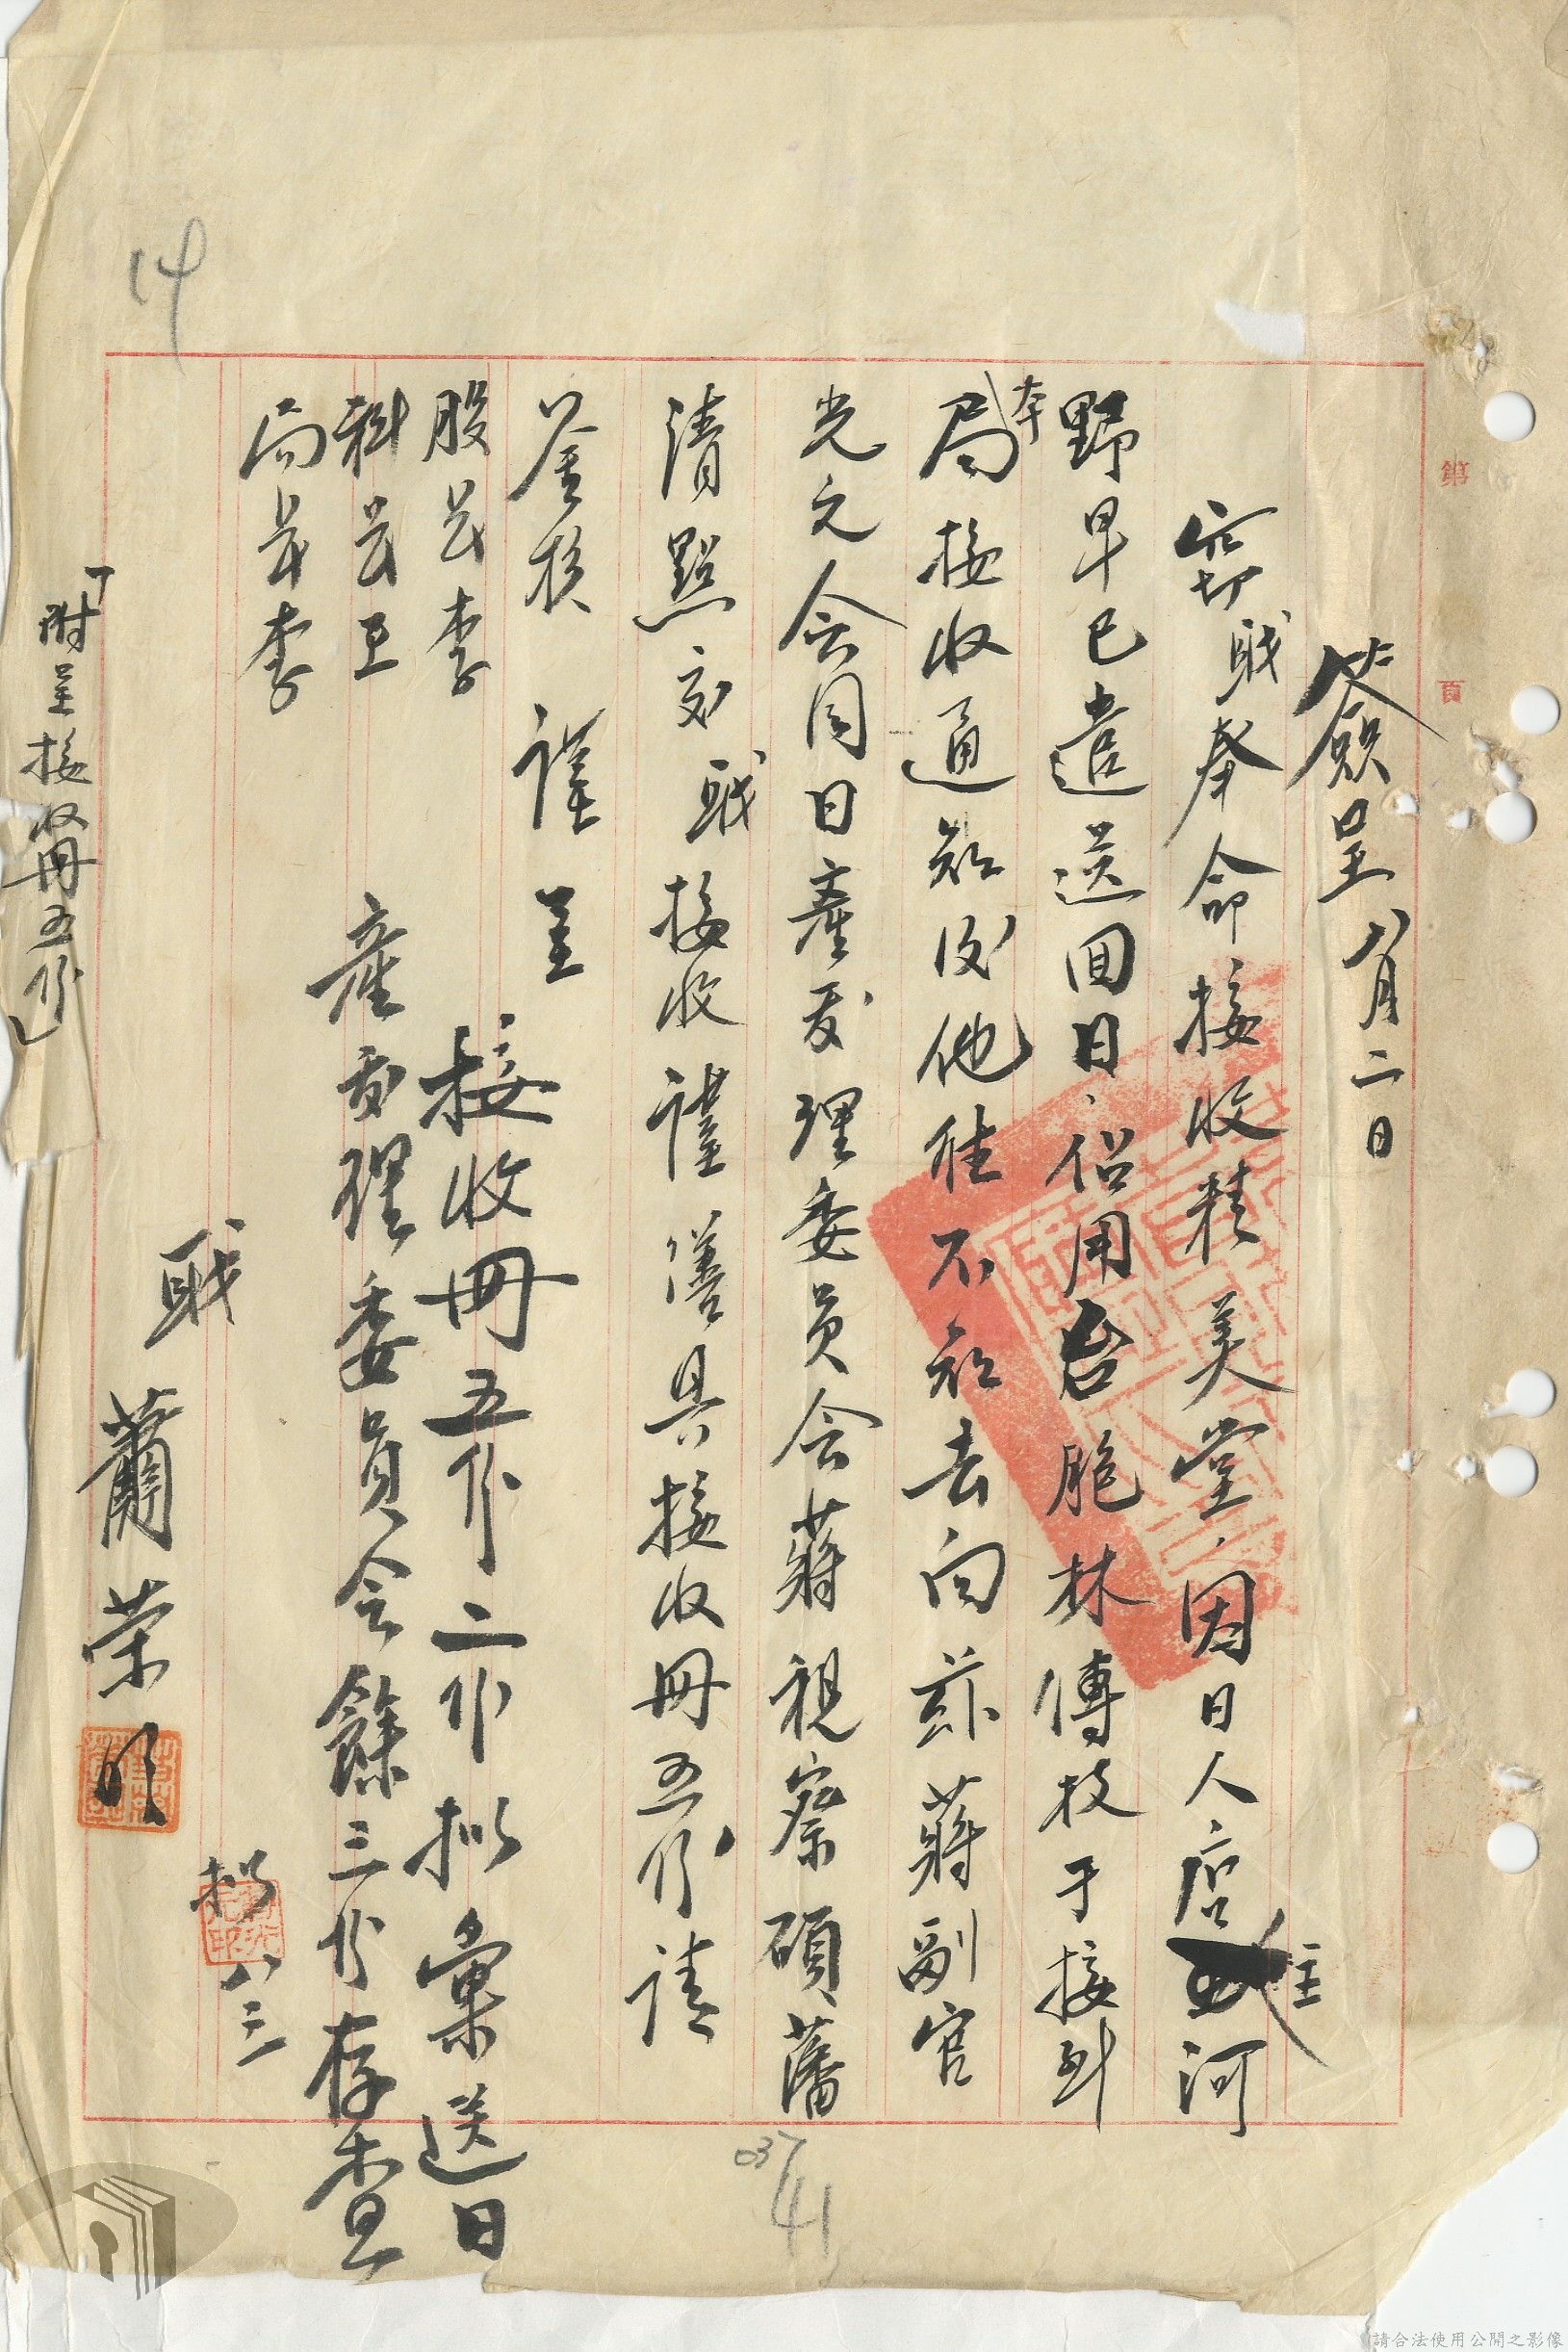 簽呈 八月二日
竊職奉命接收精美堂，因日人店主河
野早已遣送回日，侶用台胞林傳枝于接到
本局接收通知後他往不知去向茲蔣副官
光元會同日產處理委員會蔣視察碩藩
清點交職接收謹繕具接收冊五份請
鑒核 謹呈
股長李
科長王
局長李
職 蕭荣明
「附呈接收冊五份」
接收冊五份二份擬彙送日
產處理委員會餘三份存查
八三
14
037
41
第 頁
請合法使用公開之影像